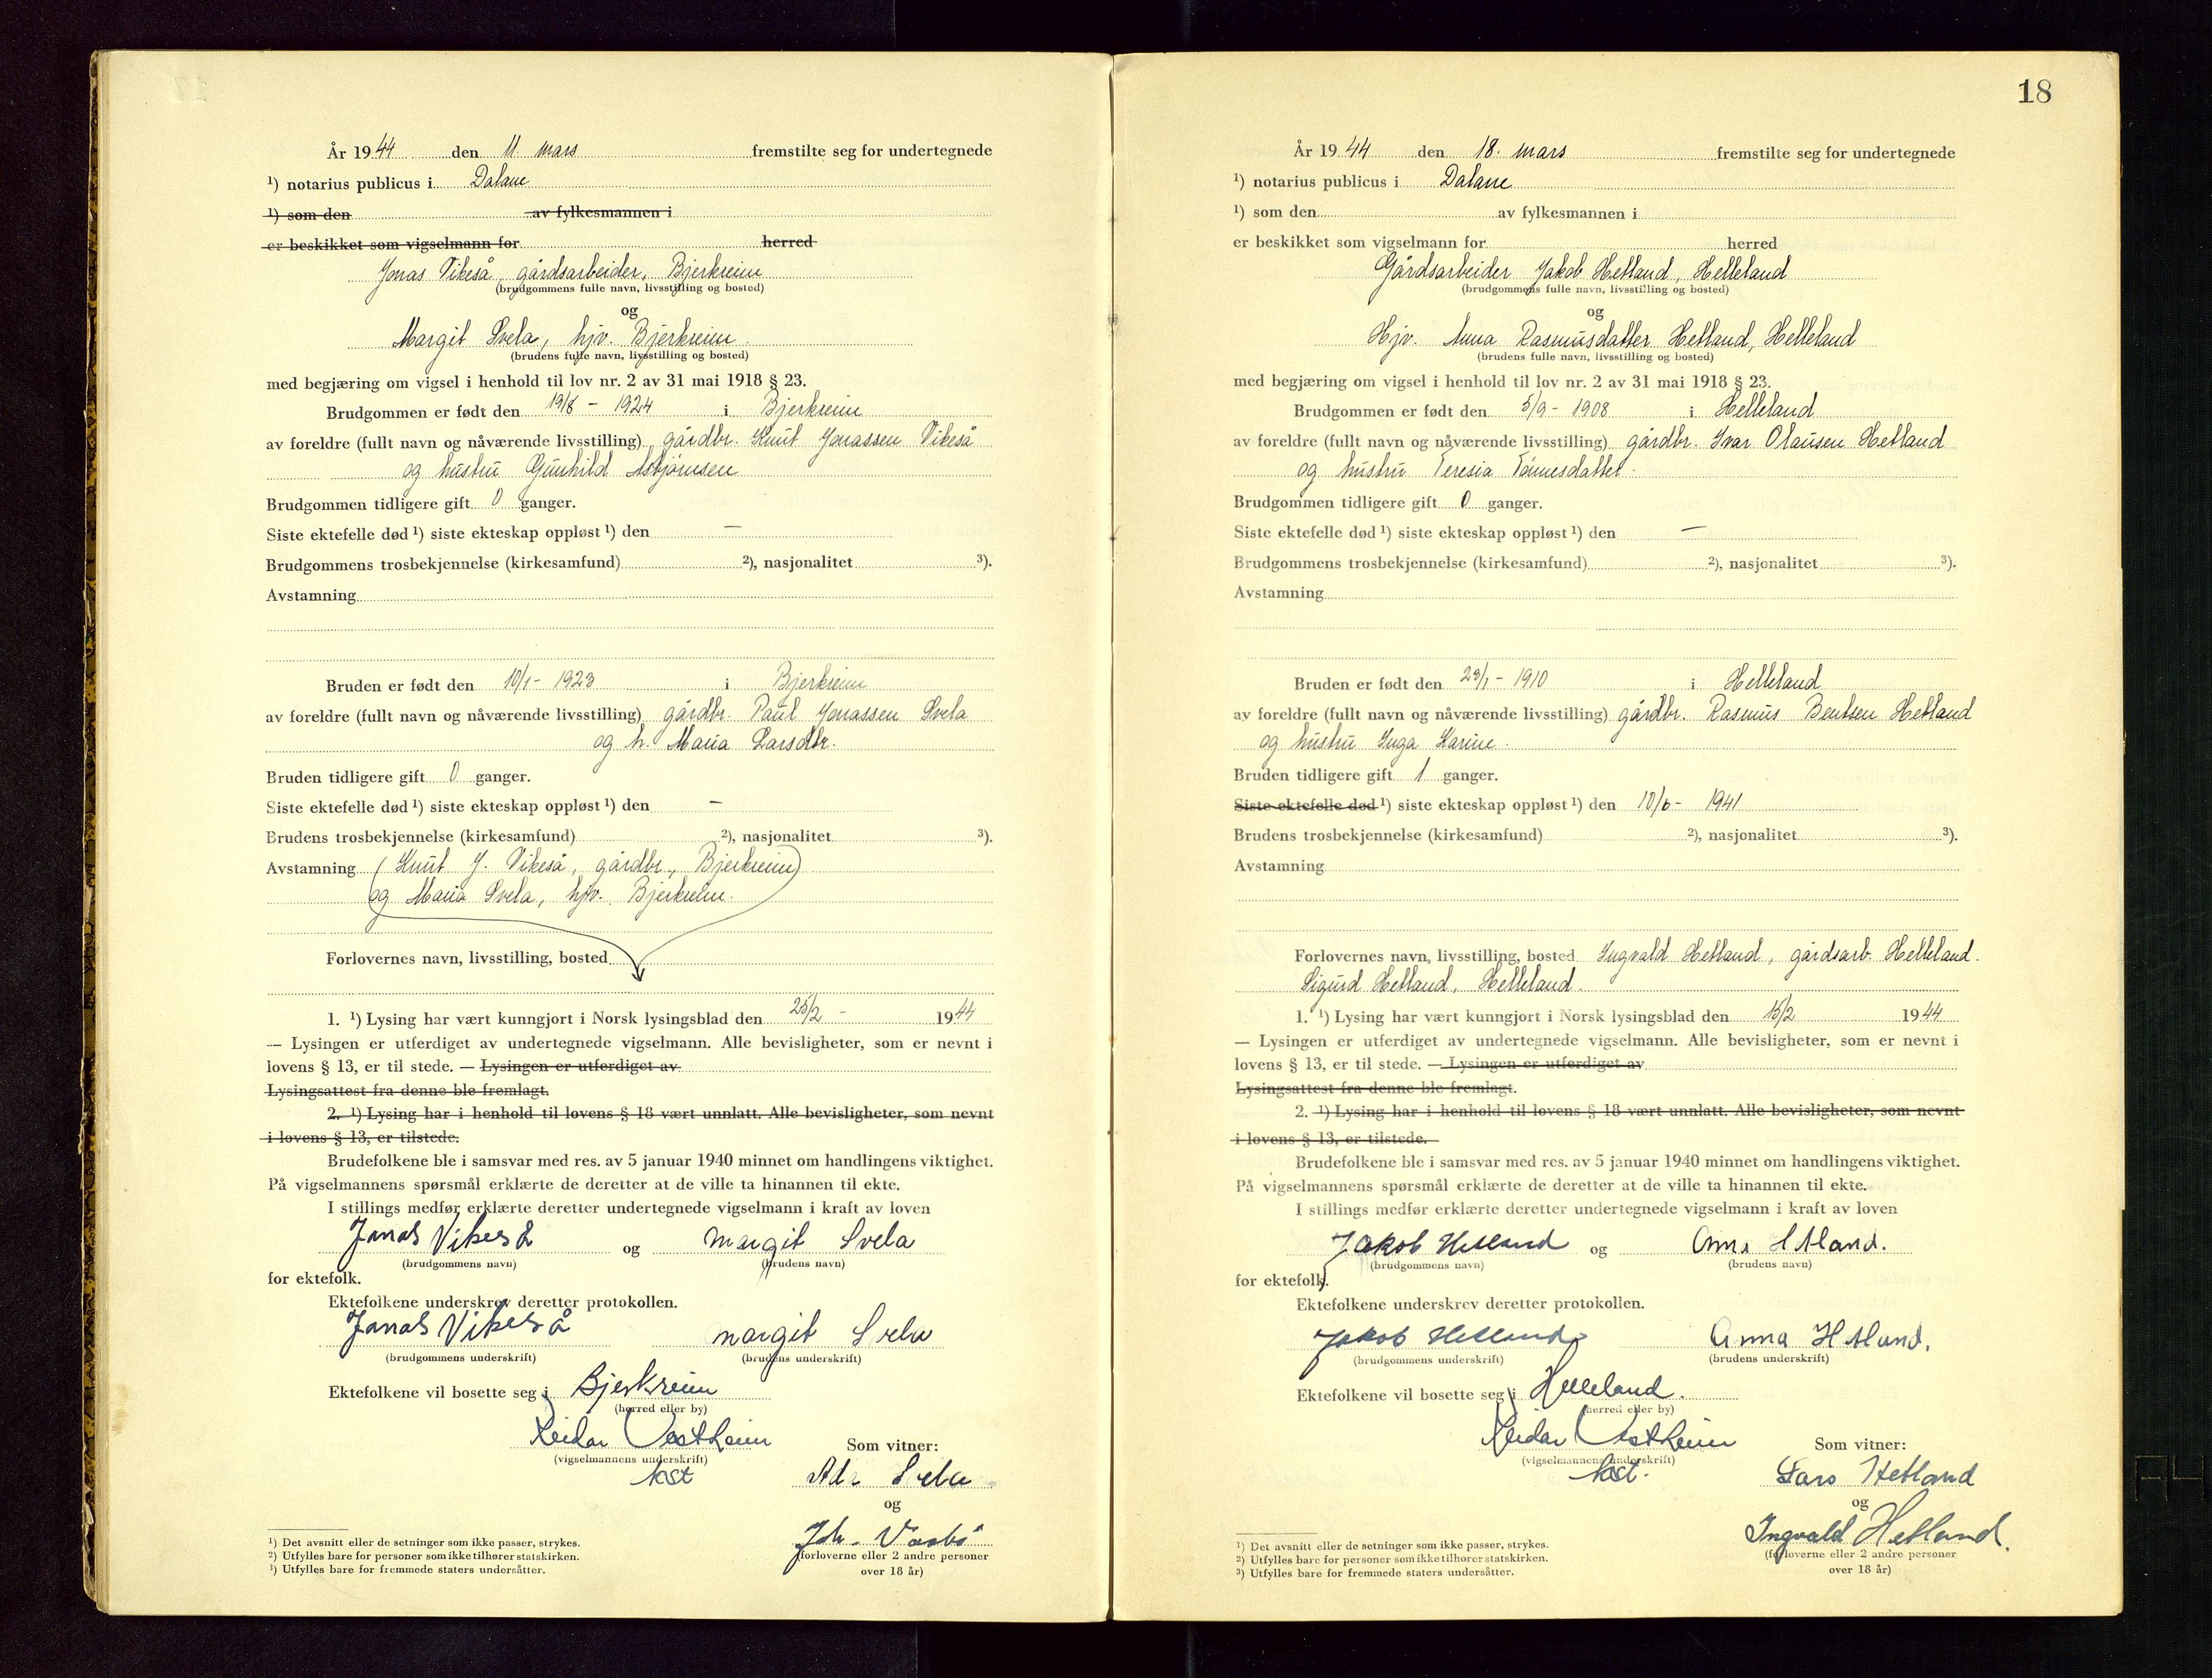 År 1944 den 11 mars fremstilte seg for undertegnede
¹) notarius publicus i Dalane
¹) som den av fylkesmannen i
er beskikket som vigselmann for herred
Jonas Vikeså, gårdsarbeider, Bjerkreim
(brudgommens fulle navn, livsstilling og bosted)
og
Margit Svela, hjv. Bjerkreim.
(brudens fulle navn, livsstilling og bosted)
med begjæring om vigsel i henhold til lov nr. 2 av 31 mai 1918 § 23.
Brudgommen er født den 19/8 - 1924 i Bjerkreim
av foreldre (fullt navn og nåværende livsstilling) gårdbr. Knut Jonassen Vikeså
og hustru Gunhild Asbjørnsen
Brudgommen tidligere gift 0 ganger.
Siste ektefelle død ¹) siste ekteskap oppløst ¹) den —
Brudgommens trosbekjennelse (kirkesamfund) ²), nasjonalitet ³).
Avstamning
Bruden er født den 10/1 - 1923 i Bjerkreim
av foreldre (fullt navn og nåværende livsstilling) gårdbr. Paul Jonassen Svela
og h. Maria Larsdtr.
Bruden tidligere gift 0 ganger.
Siste ektefelle død ¹) siste ekteskap oppløst ¹) den —
Brudens trosbekjennelse (kirkesamfund) ²), nasjonalitet ³).
Avstamning (Knut J. Vikeså, gårdbr., Bjerkreim)
og Maria Svela, hjv. Bjerkreim.
Forlovernes navn, livsstilling, bosted
1. ¹) Lysing har vært kunngjort i Norsk lysingsblad den 25/2 - 1944
— Lysingen er utferdiget av undertegnede vigselmann. Alle bevisligheter, som er nevnt i
lovens § 13, er til stede. — Lysingen er utferdiget av
Lysingsattest fra denne ble fremlagt.
2. ¹) Lysing har i henhold til lovens § 18 vært unnlatt. Alle bevisligheter, som nevnt
i lovens § 13, er tilstede.
Brudefolkene ble i samsvar med res. av 5 januar 1940 minnet om handlingens viktighet.
På vigselmannens spørsmål erklærte de deretter at de ville ta hinannen til ekte.
I stillings medfør erklærte deretter undertegnede vigselmann i kraft av loven
Jonas Vikeså og Margit Svela
(brudgommens navn) (brudens navn)
for ektefolk.
Ektefolkene underskrev deretter protokollen.
Jonas Vikeså Margit Svela
(brudgommens underskrift) (brudens underskrift)
Ektefolkene vil bosette seg i Bjerkreim
(herred eller by)
Reidar Vestheim
(vigselmannens underskrift)
Som vitner:
Svela
og
Joh.
(forloverne eller 2 andre personer
over 18 år)
¹) Det avsnitt eller de setninger som ikke passer, strykes.
²) Utfylles bare for personer som ikke tilhører statskirken.
¹) Utfylles bare for fremmede staters undersåtter.
18
År 1944 den 18. mars fremstilte seg for undertegnede
¹) notarius publicus i Dalane
¹) som den av fylkesmannen i
er beskikket som vigselmann for herred
Gårdsarbeider Jakob Hetland, Helleland
(brudgommens fulle navn, livsstilling og bosted)
og
Hjv. Anna Rasmusdatter Hetland, Helleland
(brudens fulle navn, livsstilling og bosted)
med begjæring om vigsel i henhold til lov nr. 2 av 31 mai 1918 § 23.
Brudgommen er født den 5/9 - 1908 i Helleland
av foreldre (fullt navn og nåværende livsstilling) gårdbr. Ivar Olausen Hetland
og hustru Teresia Tønnesdatter.
Brudgommen tidligere gift 0 ganger.
Siste ektefelle død ¹) siste ekteskap oppløst ¹) den —
Brudgommens trosbekjennelse (kirkesamfund) ²), nasjonalitet ³).
Avstamning
Bruden er født den 29/1 - 1910 i Helleland
av foreldre (fullt navn og nåværende livsstilling) gårdbr. Rasmus Bentsen Hetland
og hustru Inga Karine.
Bruden tidligere gift 1 ganger.
Siste ektefelle død ¹) siste ekteskap oppløst ¹) den 10/6 - 1941
Brudens trosbekjennelse (kirkesamfund) ²), nasjonalitet ³).
Avstamning
Forlovernes navn, livsstilling, bosted Ingvald Hetland, gårdsarb. Helleland.
Sigurd Hetland, Helleland.
1. ¹) Lysing har vært kunngjort i Norsk lysingsblad den 15/2 1944
— Lysingen er utferdiget av undertegnede vigselmann. Alle bevisligheter, som er nevnt i
lovens § 13, er til stede. — Lysingen er utferdiget av
Lysingsattest fra denne ble fremlagt.
2. ¹) Lysing har i henhold til lovens § 18 vært unnlatt. Alle bevisligheter, som nevnt
i lovens § 13, er tilstede.
Brudefolkene ble i samsvar med res. av 5 januar 1940 minnet om handlingens viktighet.
På vigselmannens spørsmål erklærte de deretter at de ville ta hinannen til ekte.
I stillings medfør erklærte deretter undertegnede vigselmann i kraft av loven
Jakob Hetland og Anna Hetland.
(brudgommens navn) (brudens navn)
for ektefolk.
Ektefolkene underskrev deretter protokollen.
Jakob Hetland Anna Hetland.
(brudgommens underskrift) (brudens underskrift)
Ektefolkene vil bosette seg i Helleland.
(herred eller by)
Reidar Vestheim
(vigselmannens underskrift)
Som vitner:
Lars Hetland
og
Ingvald Hetland.
(forloverne eller 2 andre personer
over 18 år)
¹) Det avsnitt eller de setninger som ikke passer, strykes.
²) Utfylles bare for personer som ikke tilhører statskirken.
³) Utfylles bare for fremmede staters undersåtter.